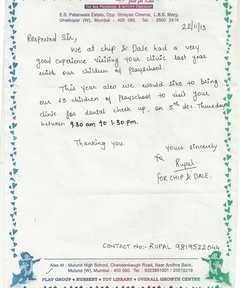 E.S. Patanwala Estate, Opp. Shreyas Cinema, L.B.S. Marg,
Ghatkopar (W), Mumbai - 400 086. Tel. : 2500 2410
22/11/13
Respected Sir,
We at chip & Dale had a very
good experience visiting your clinic last year
with our children of playschool.
This year also we would like to bring
our 65 children of Playschool to visit your
clinic for dental check up, on 5th dec. Thursday
between 9.30 am to 1.30 pm.
Thanking you.
Yours sincerely
Rupal
FOR CHIP & DALE.
CONTACT NO: RUPAL 9819522044
Also At : Mulund High School, Chandanbaugh Road, Near Andhra Bank,
Mulund (W), Mumbai - 400 080. Tel. : 9323601001 / 25918219
PLAY GROUP • NURSERY • TOY LIBRARY • OVERALL GROWTH CENTRE